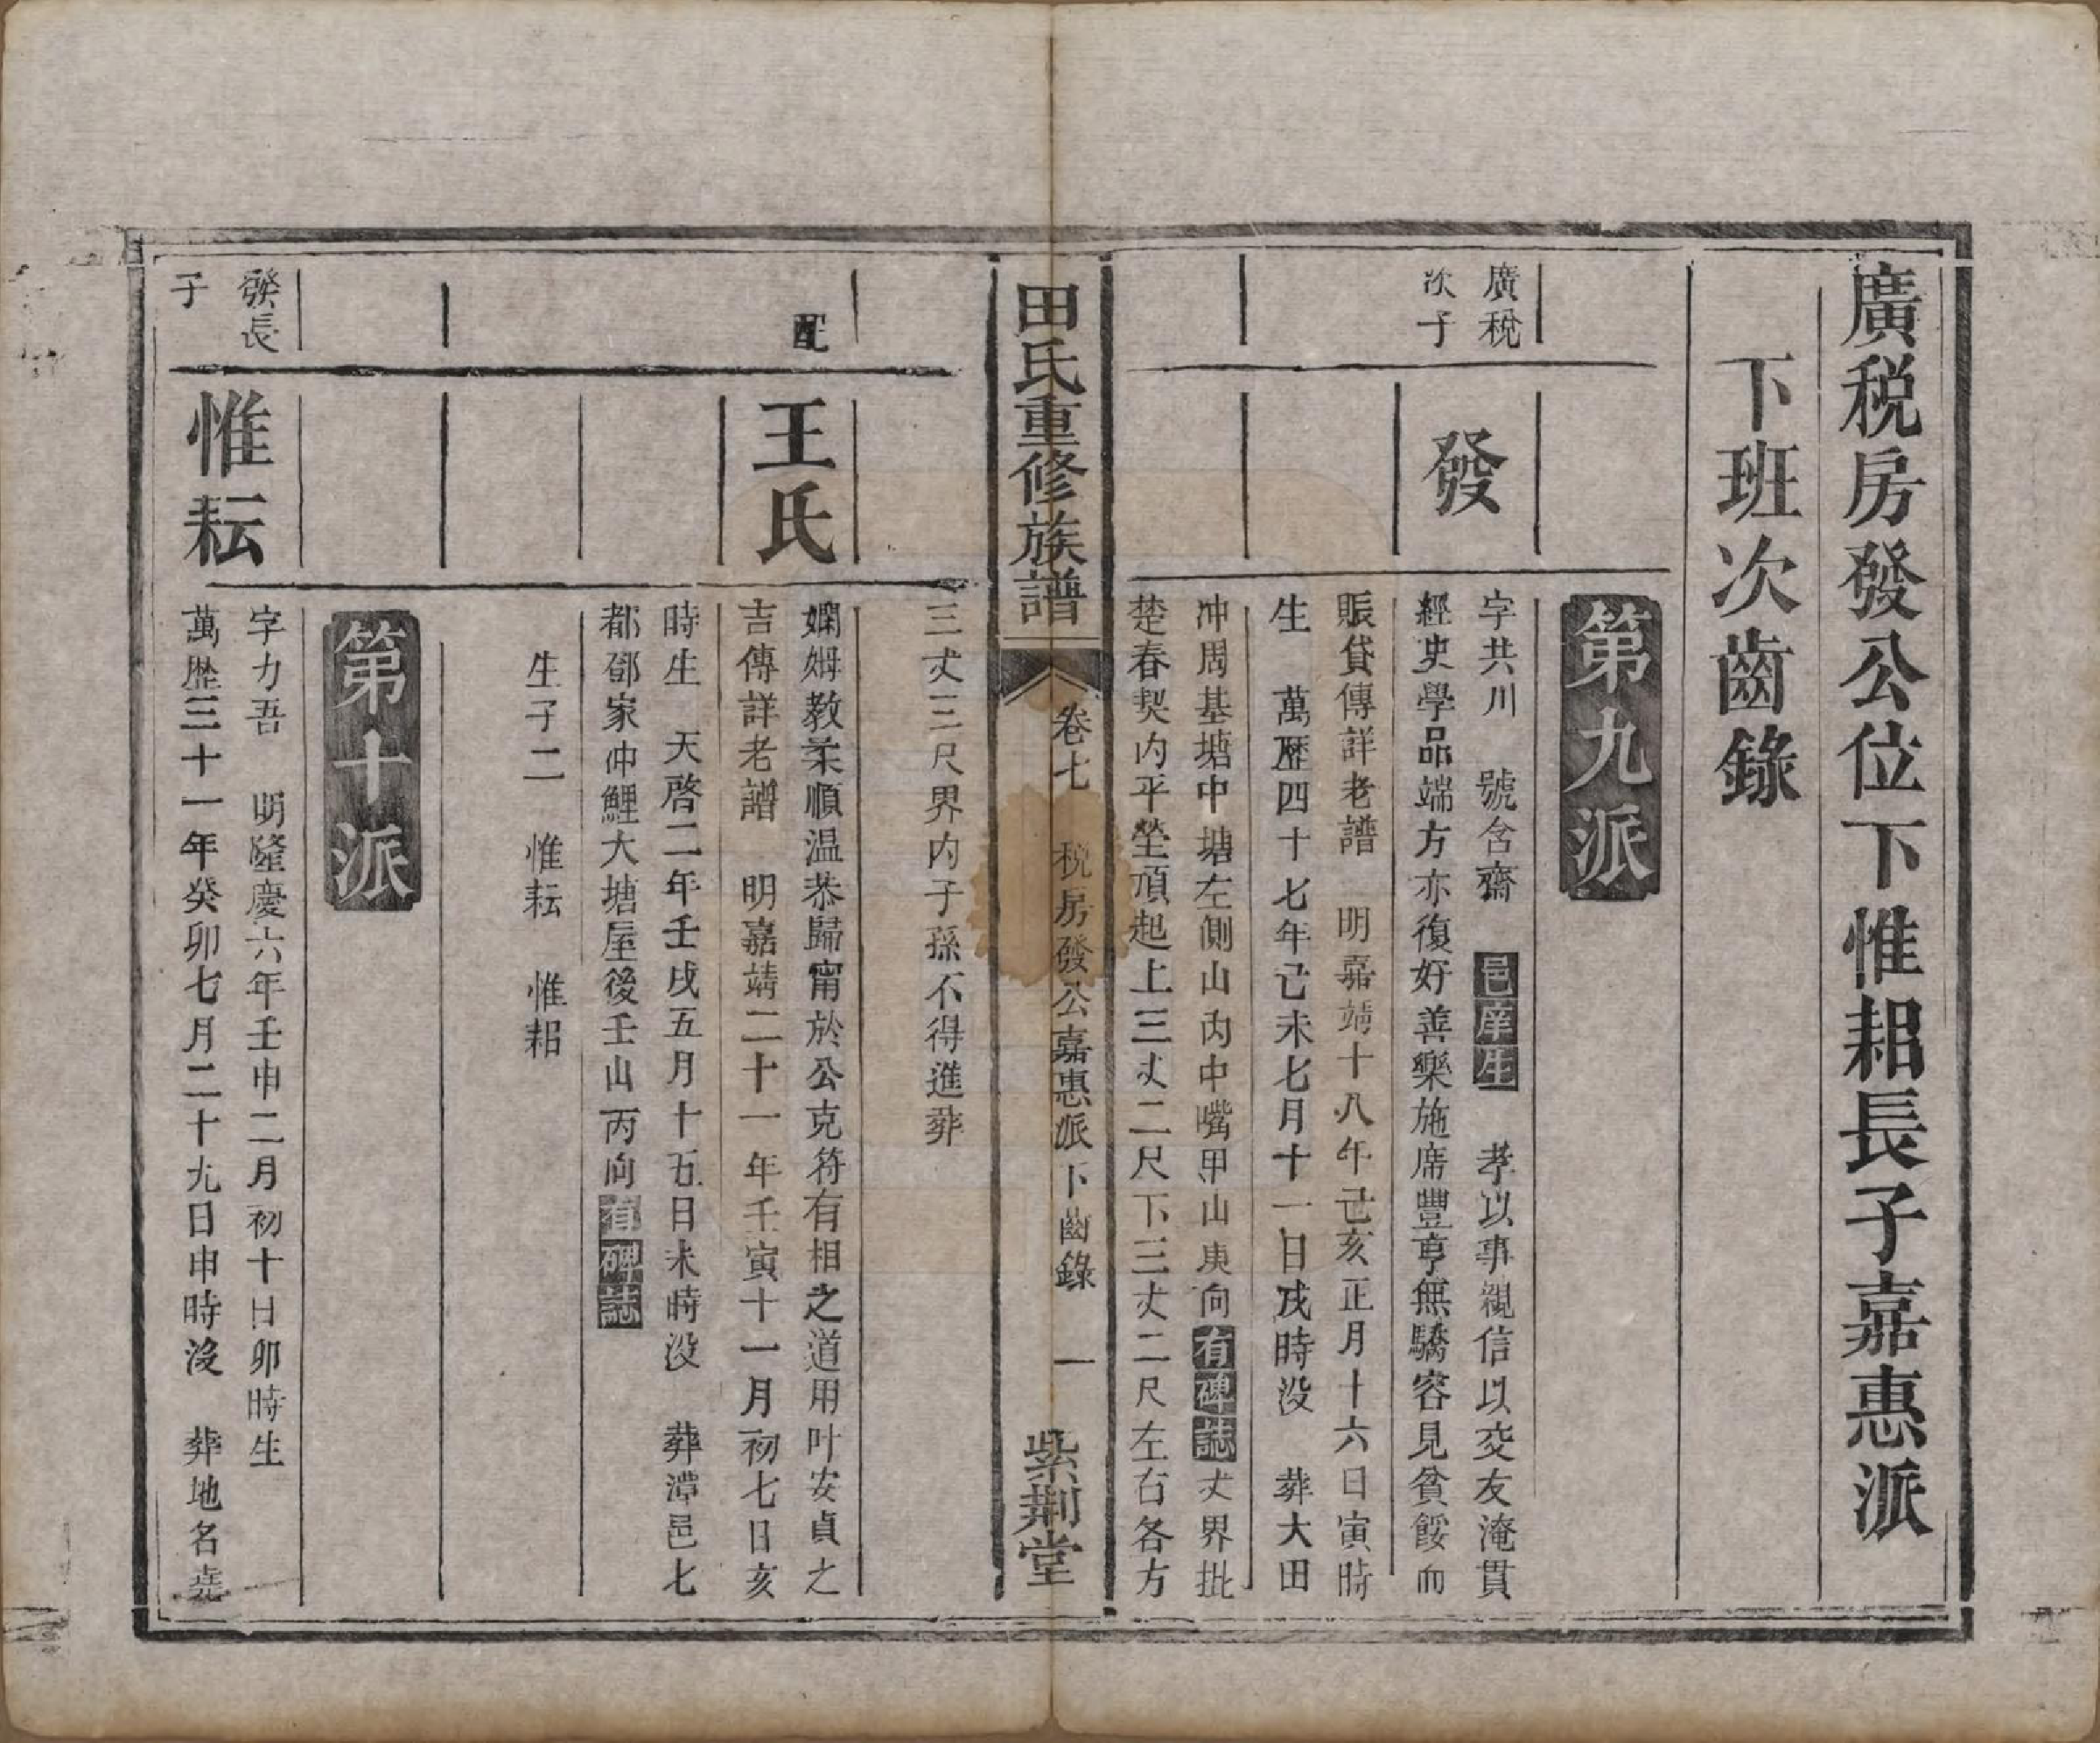 廣税房發公位下惟耜長子嘉惠派
下班次齒錄
第九派
廣稅
次子
發
字共川　號含齋　邑庠生　孝以事親信以交友淹貫
經史學品端方亦復好善樂施席豐亨無驕容見貧餒而
賑貸傳詳老譜　明嘉靖十八年己亥正月十六日寅時
生　萬歷四十七年己未七月十一日戌時没　葬大田
冲周基塘中塘左側山內中嘴甲山庚向有碑誌丈界批
楚春契內平塋頂起上三丈二尺下三丈二尺左右各方
田氏重修族譜
卷七　稅房發公嘉惠派下齒錄　一
紫荆堂
三丈三尺界內子孫不得進葬
配
王氏
嫻姆教柔順温恭歸甯於公克符有相之道用叶安貞之
吉傳詳老譜　明嘉靖二十一年壬寅十一月初七日亥
時生　天啓二年壬戌五月十五日未時没　葬潭邑七
都鄧家冲鯉大塘屋後壬山丙向有碑誌
生子二　惟耘　惟耜
第十派
發長
子
惟耘
字力吾　明隆慶六年壬申二月初十日卯時生
萬歷三十一年癸卯七月二十九日申時没　葬地名堯